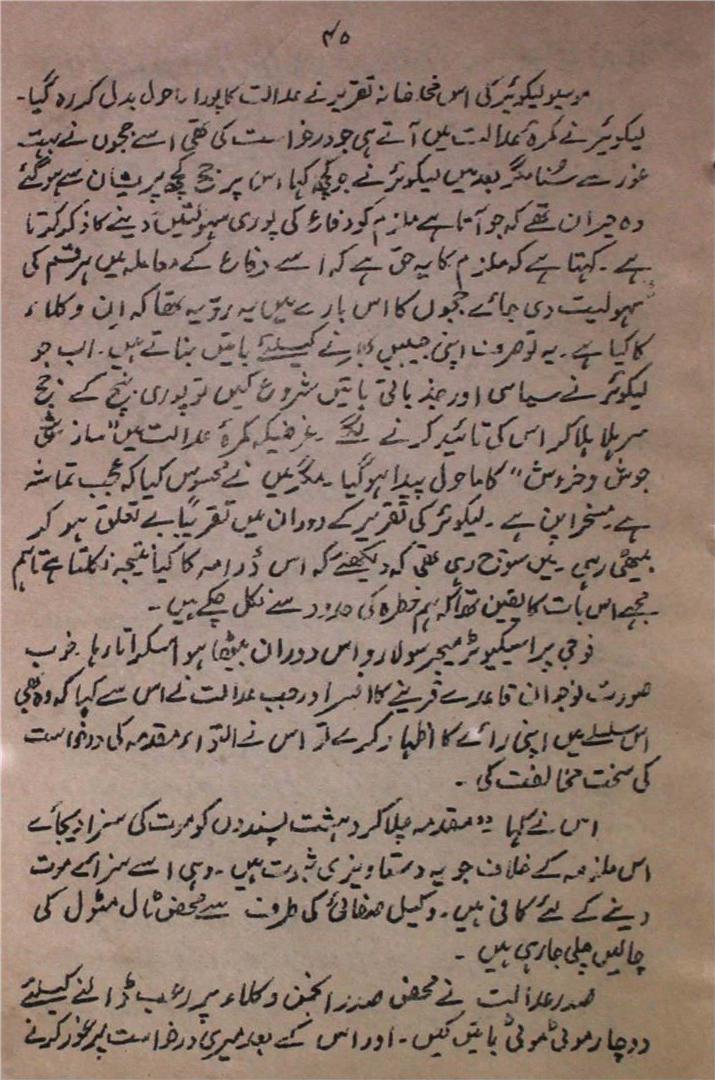 ۴۵
موسیو لیکوئیر کی اس فحاضانہ تقریر نے عدالت کا پورا ماحول بدل کر رہ گیا۔
لیکوئیر نے کمرۂ عدالت میں آتے ہی جو درخواست کی تھی اسے ججوں نے بہت
غور سے سُنا مگر بعد میں لیکوئر نے جو کچھ کہا اس پر جج کچھ پریشان سے ہو گئے
وہ حیران تھے کہ جو آتا ہے ملزم کو دفاع کی پوری سہولتیں دینے کا ذکر کرتا
ہے۔ کہتا ہے کہ ملزم کا یہ حق ہے کہ اسے دفاع کے معاملہ میں ہر قسم کی
سہولیت دی جائے ججوں کا اس بارے میں یہ رویہ تھا کہ ان وکلاء
کا کیا ہے۔ یہ تو صرف اپنی جیبیں بھرنے کیلئے باتیں بناتے ہیں۔ اب جو
لیکوئر نے سیاسی اور جذباتی باتیں شروع کیں تو پوری بنچ کے جج
سر ہلا ہلا کر اس کی تائید کرنے لگے۔ غرضیکہ کمرۂ عدالت میں "سازشی
جوش و خروش" کا ماحول پیدا ہو گیا۔ مگر میں نے محسوس کیا کہ عجب تماشہ
ہے مسخرا پن ہے۔ لیکوئر کی تقریر کے دوران میں تقریباً بے تعلق ہو کر
بیٹھی رہی۔ میں سوچ رہی تھی کہ دیکھئے کہ اس ڈرامہ کا کیا نتیجہ نکلتا ہے تاہم
مجھے اس بات کا یقین تھا کہ ہم خطرہ کی حدود سے نکل چکے ہیں۔
فوجی پراسیکیوٹر میجر سولارو اس دوران بیٹھا ہوا مسکراتا رہا۔ خوب
صورت نوجوان قاعدے قرینے کا افسر اور جب عدالت نے اس سے کہا کہ وہ بھی
اس سلسلے میں اپنی رائے کا اظہار کرے تو اس نے التواء مقدمہ کی درخواست
کی سخت مخالفت کی۔
اس نے کہا یہ مقدمہ چلا کر دہشت پسندوں کو موت کی سزا دیجائے
اس ملزمہ کے خلاف جو یہ دستاویزی ثبوت ہیں۔ وہی اسے سزائے موت
دینے کے لئے کافی ہیں۔ وکیل صفائی کی طرف سے محض ٹال مٹول کی
چالیں چلی جا رہی ہیں۔
صدر عدالت نے محض صدر انجمن وکلاء پر رعب ڈالنے کیلئے
دو چار موٹی موٹی باتیں کیں۔ اور اس کے بعد میری درخواست پر غور کرنے